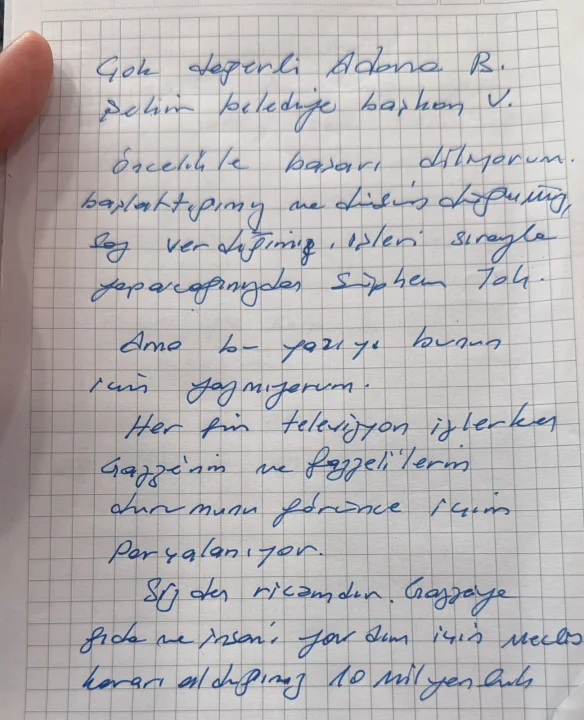 Çok değerli Adana B.
Şehir belediye başkan V.
Öncelikle başarı diliyorum.
başlattığınız ve düşündüğünüz,
Söz verdiğiniz işleri sırayla
yapacağınızdan Şüphem Yok.
Ama bu yazıyı bunun
için yazmıyorum.
Her gün televizyon izlerken
Gazze'nin ve gazzeli'lerin
durumunu görünce içim
Parçalanıyor.
Sizden ricamdır. Gazzeye
gıda ve insani yardım için meclis
kararı aldığınız 10 milyonluk